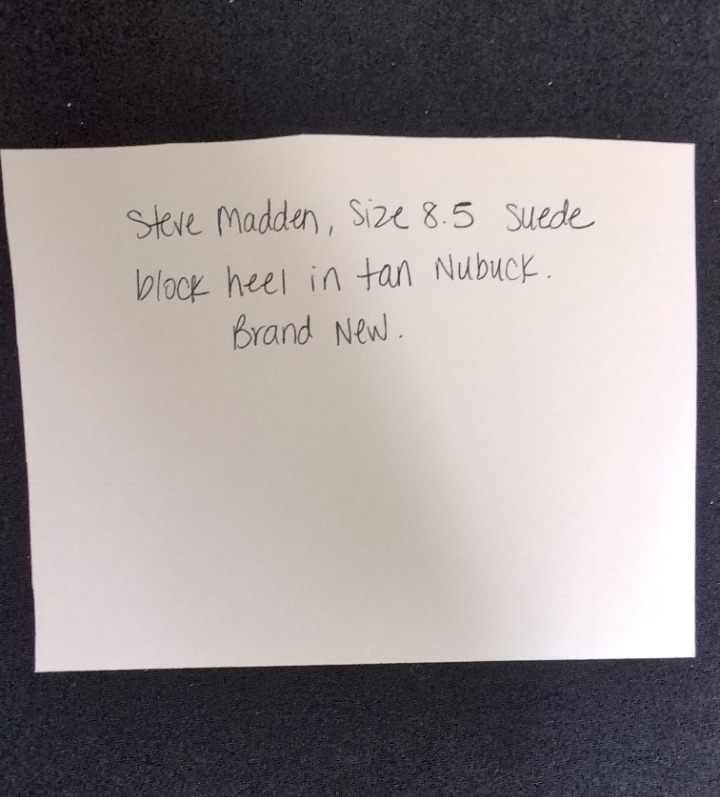 Steve Madden, Size 8.5 Suede
block heel in tan Nubuck.
Brand New.